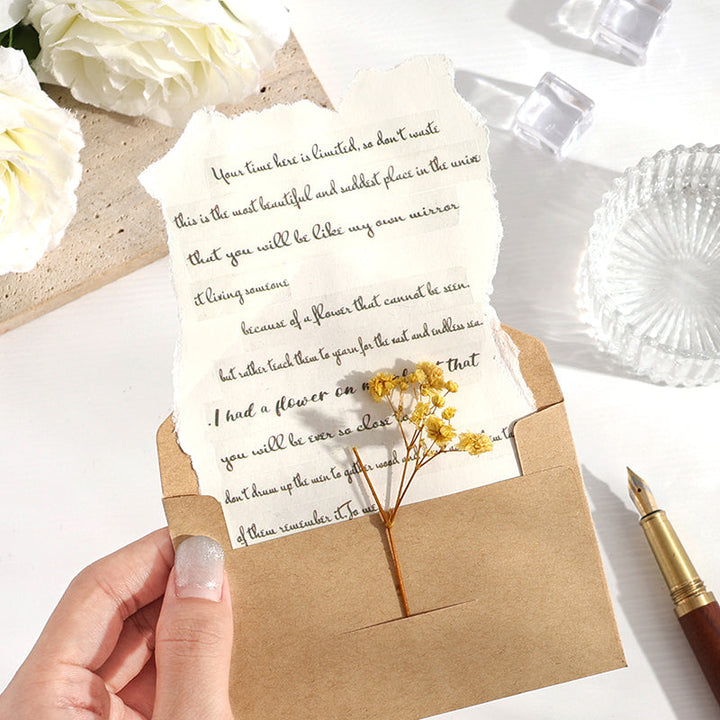 Your time here is limited, so don't waste
this is the most beautiful and saddest place in the unive
that you will be like my own mirror
it living someone
because of a flower that cannot be seen.
but rather teach them to yearn for the vast and endless sea.
. I had a flower on that
you will be ever so close to
don't drum up the men to gather wood and
of them remember it. To me